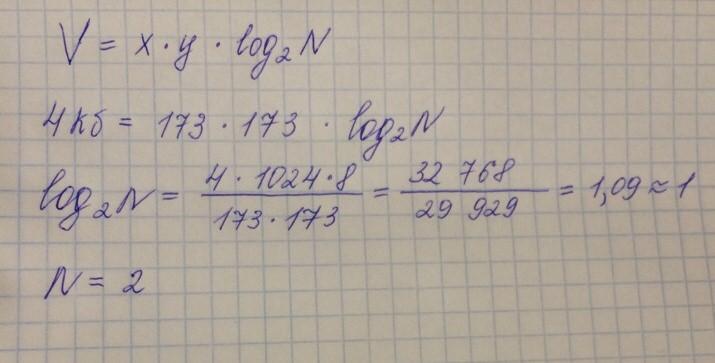 V = x · y · log₂N
4 Кб = 173 · 173 · log₂N
log₂N = 4 · 1024 · 8 / 173 · 173 = 32 768 / 29 929 = 1,09 ≈ 1
N = 2